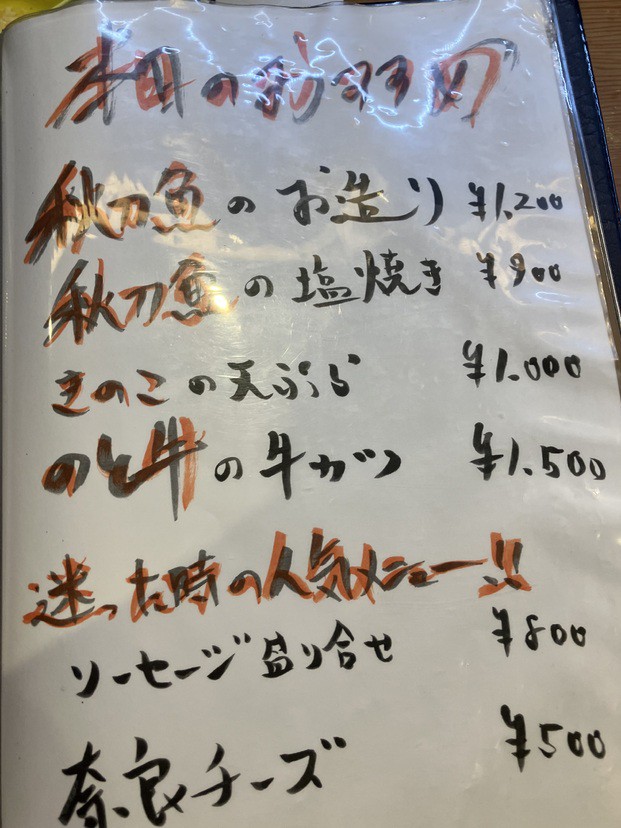 本日のおすすめ
秋刀魚のお造り ¥1,200
秋刀魚の塩焼き ¥900
きのこの天ぷら ¥1.000
のと牛の牛カツ ¥1.500
迷った時の人気メニュー!!
ソーセージ盛り合せ ¥800
奈良チーズ ¥500